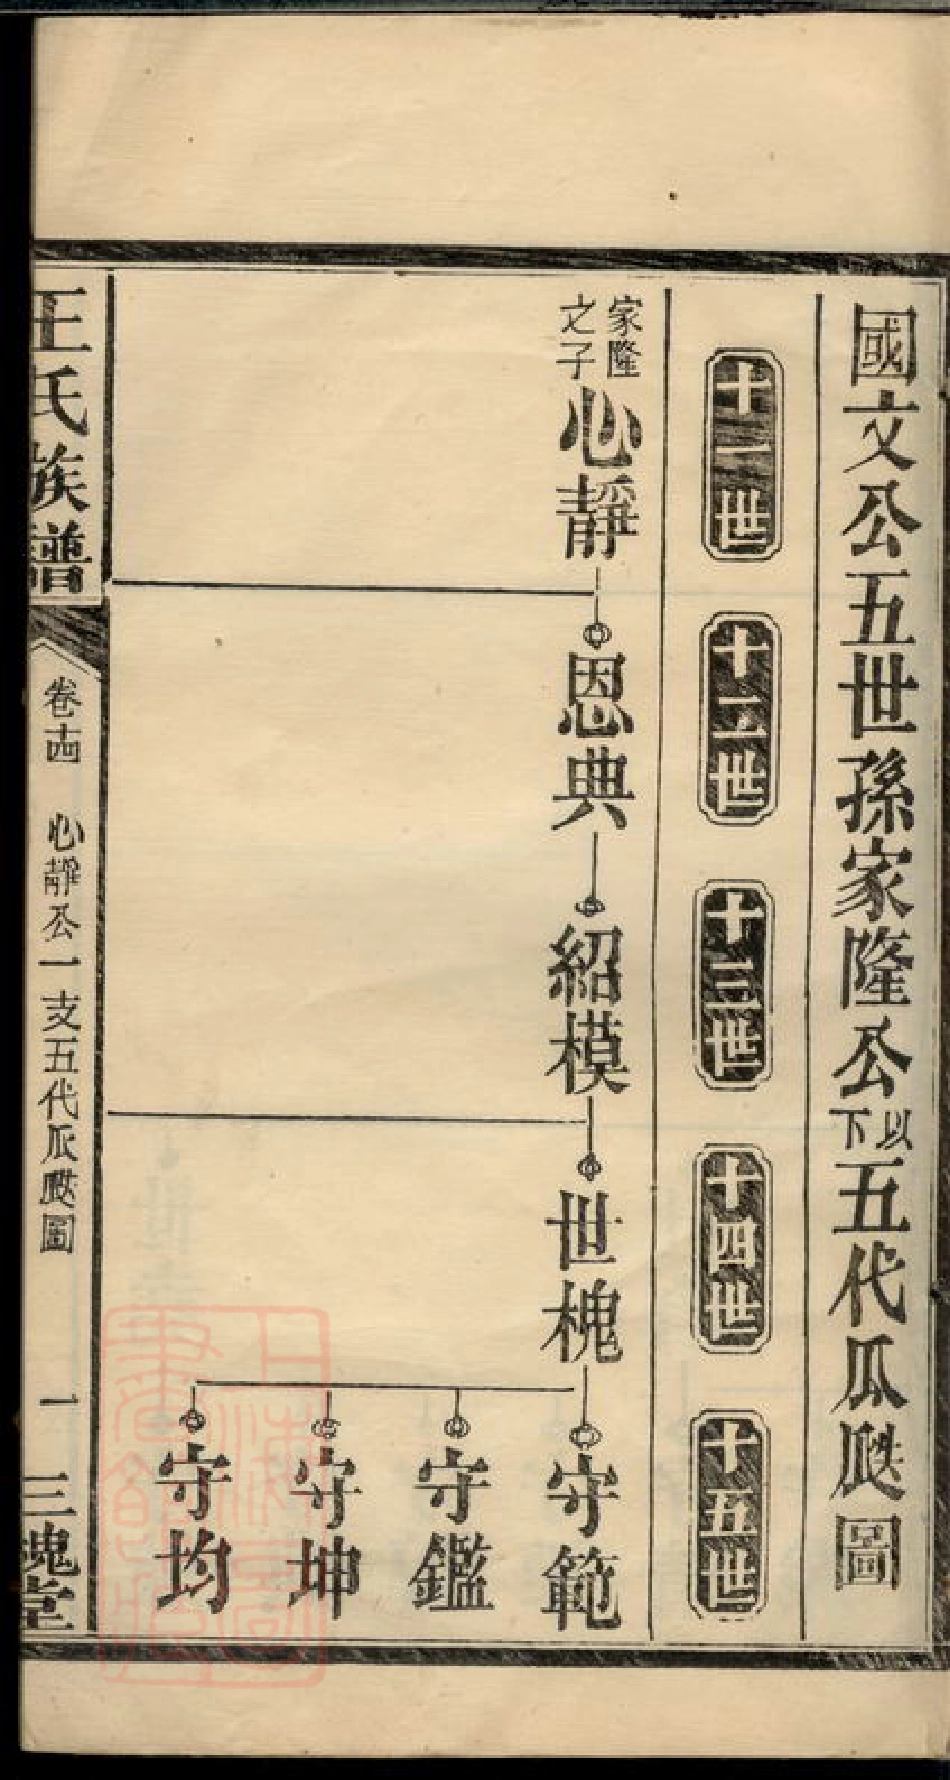 國文公五世孫家隆公以下五代瓜瓞圖
十一世
十二世
十三世
十四世
十五世
家隆之子心靜
恩典
紹模
世槐
守範
守鑑
守坤
守均
王氏族譜
卷十四 心靜公一支五代瓜瓞圖
一
三槐堂